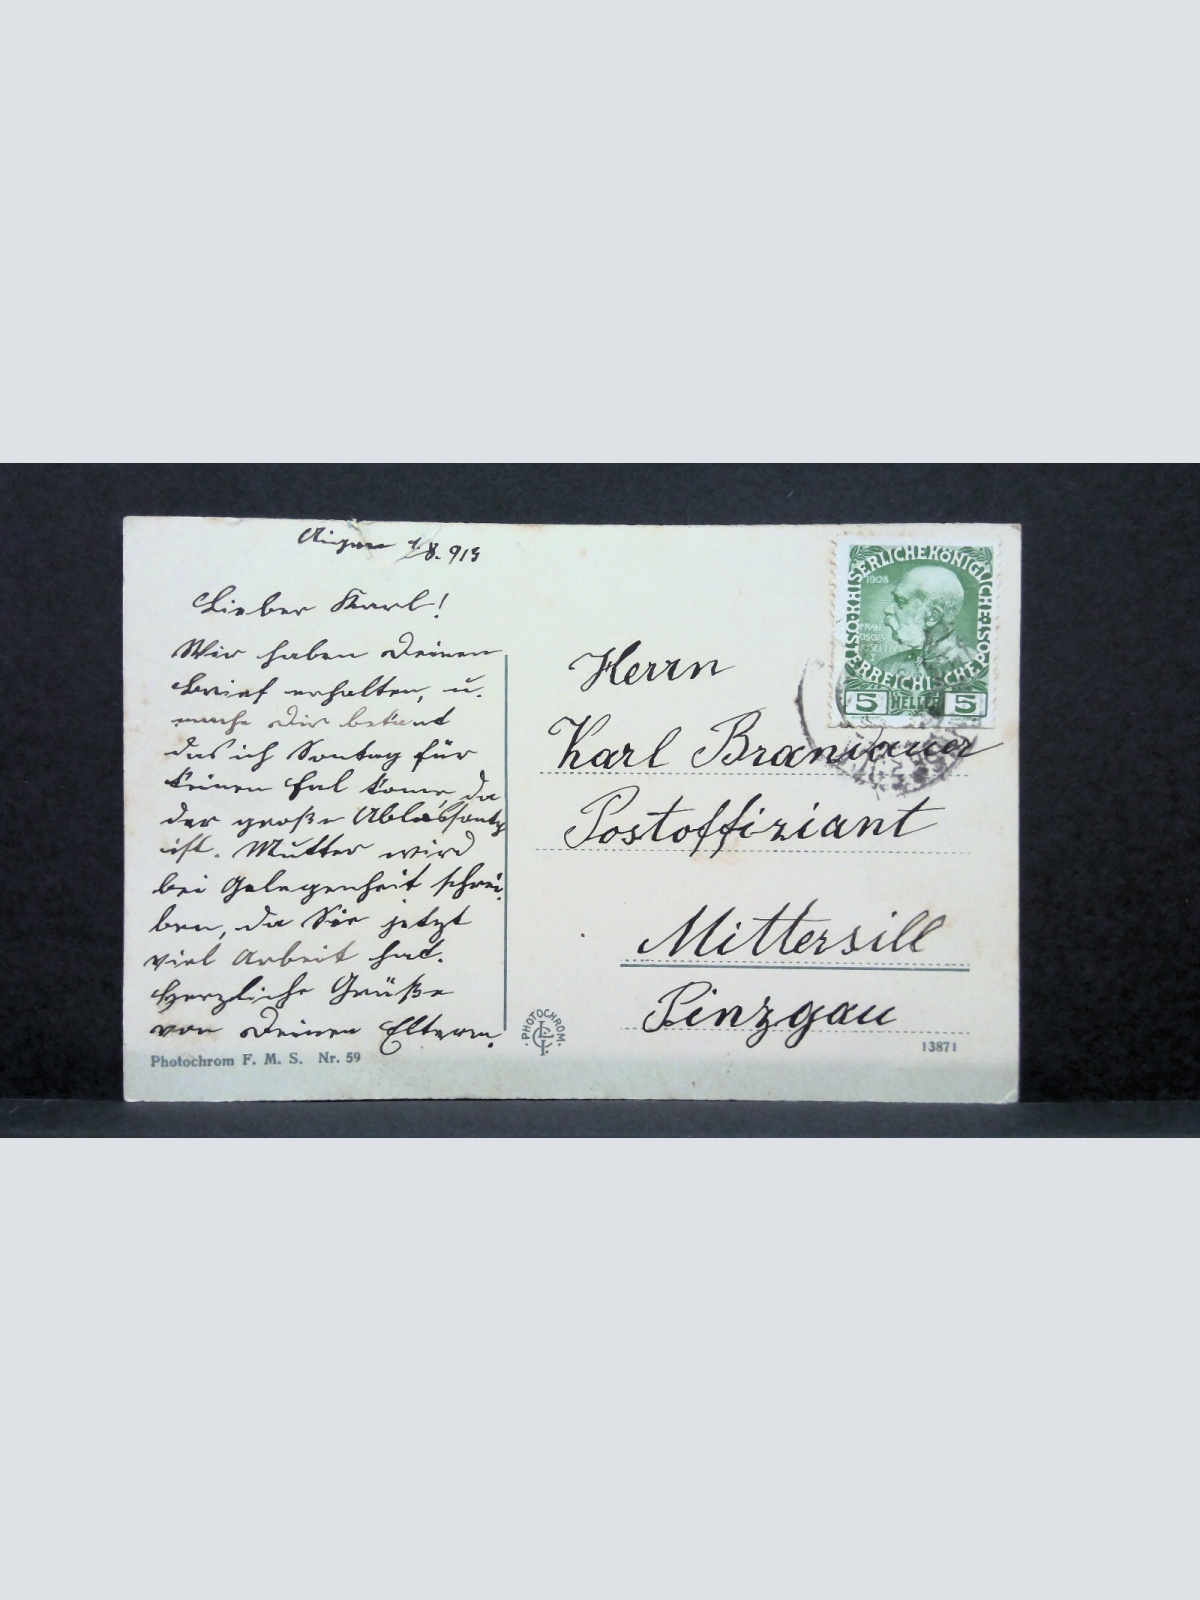 Aigen 1/8. 913
Lieber Karl!
Wir haben Deinen
Brief erhalten, u.
mache Dir bekant
das ich Sontag für
keinen Fal kome, da
der große Ablaßsontg
ist. Mutter wird
bei Gelegenheit schrei-
ben, da Sie jetzt
viel Arbeit hat.
Herzliche Grüße
von Deinen Eltern.
Photochrom F. M. S. Nr. 59
PHOTOCHROM.
KAISERLICHE KÖNIGLICHE ÖSTERREICHISCHE POST
1908
5 HELLER 5
Herrn
Karl Braniauer
Postoffiziant
Mittersill
Pinzgau
13871